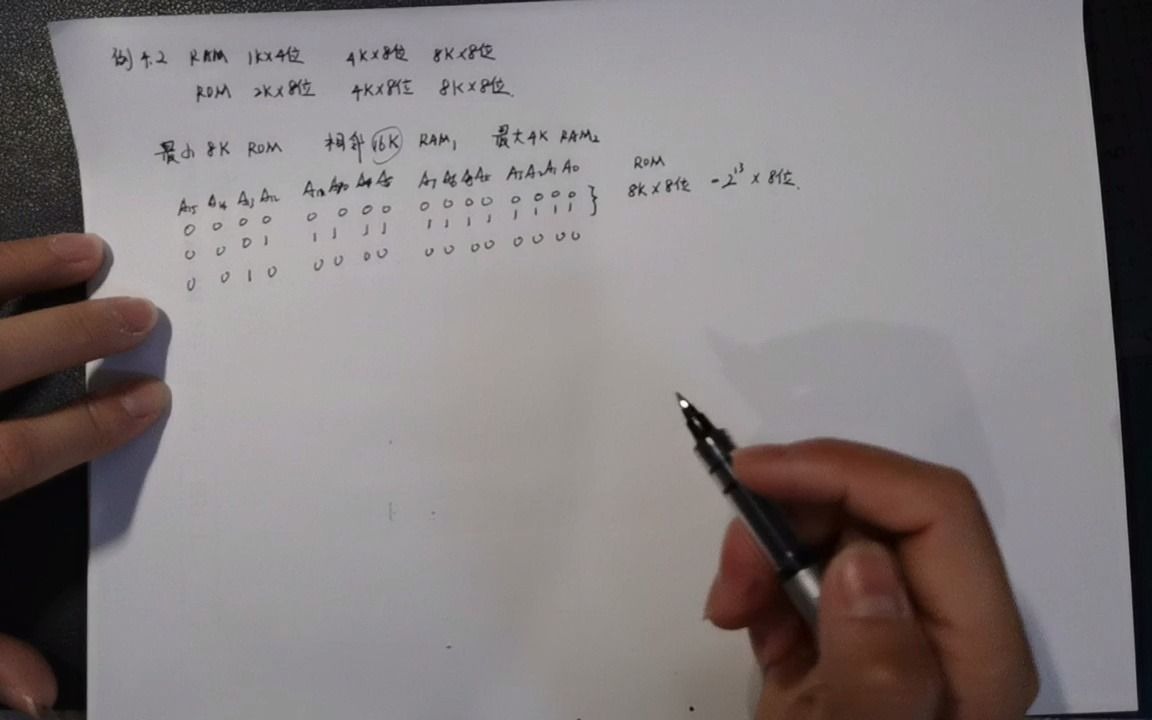 例 4.2 RAM 1K×4位 4K×8位 8K×8位
ROM 2K×8位 4K×8位 8K×8位.
最小 8K ROM 相邻 16K RAM1 最大 4K RAM2
A15 A14 A13 A12 A11 A10 A9 A8 A7 A6 A5 A4 A3 A2 A1 A0 ROM
0 0 0 0 0 0 0 0 0 0 0 0 0 0 0 0 } 8K×8位 - 2^13 × 8位.
0 0 0 1 1 1 1 1 1 1 1 1 1 1 1 1
0 0 1 0 0 0 0 0 0 0 0 0 0 0 0 0